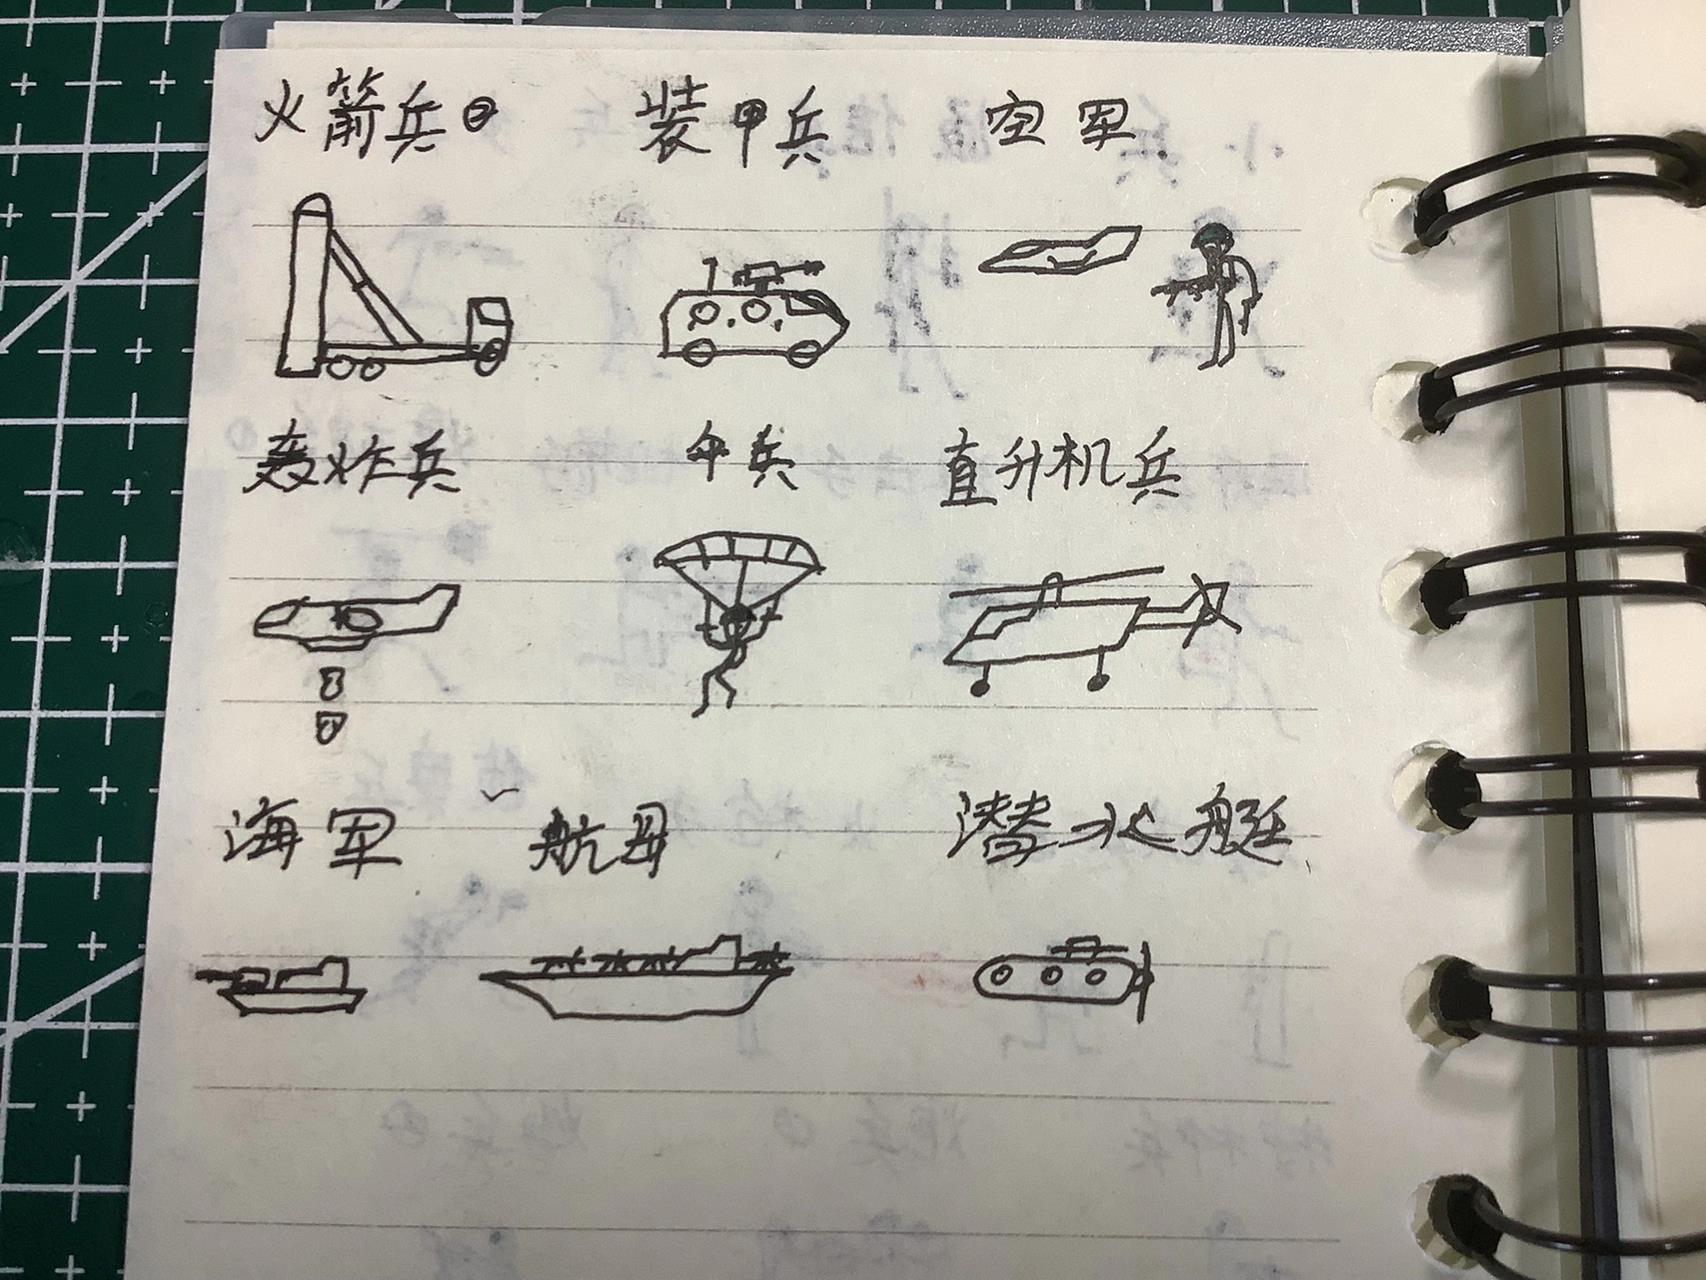 火箭兵② 装甲兵 空军
轰炸兵 伞兵 直升机兵
海军 航母 潜水艇